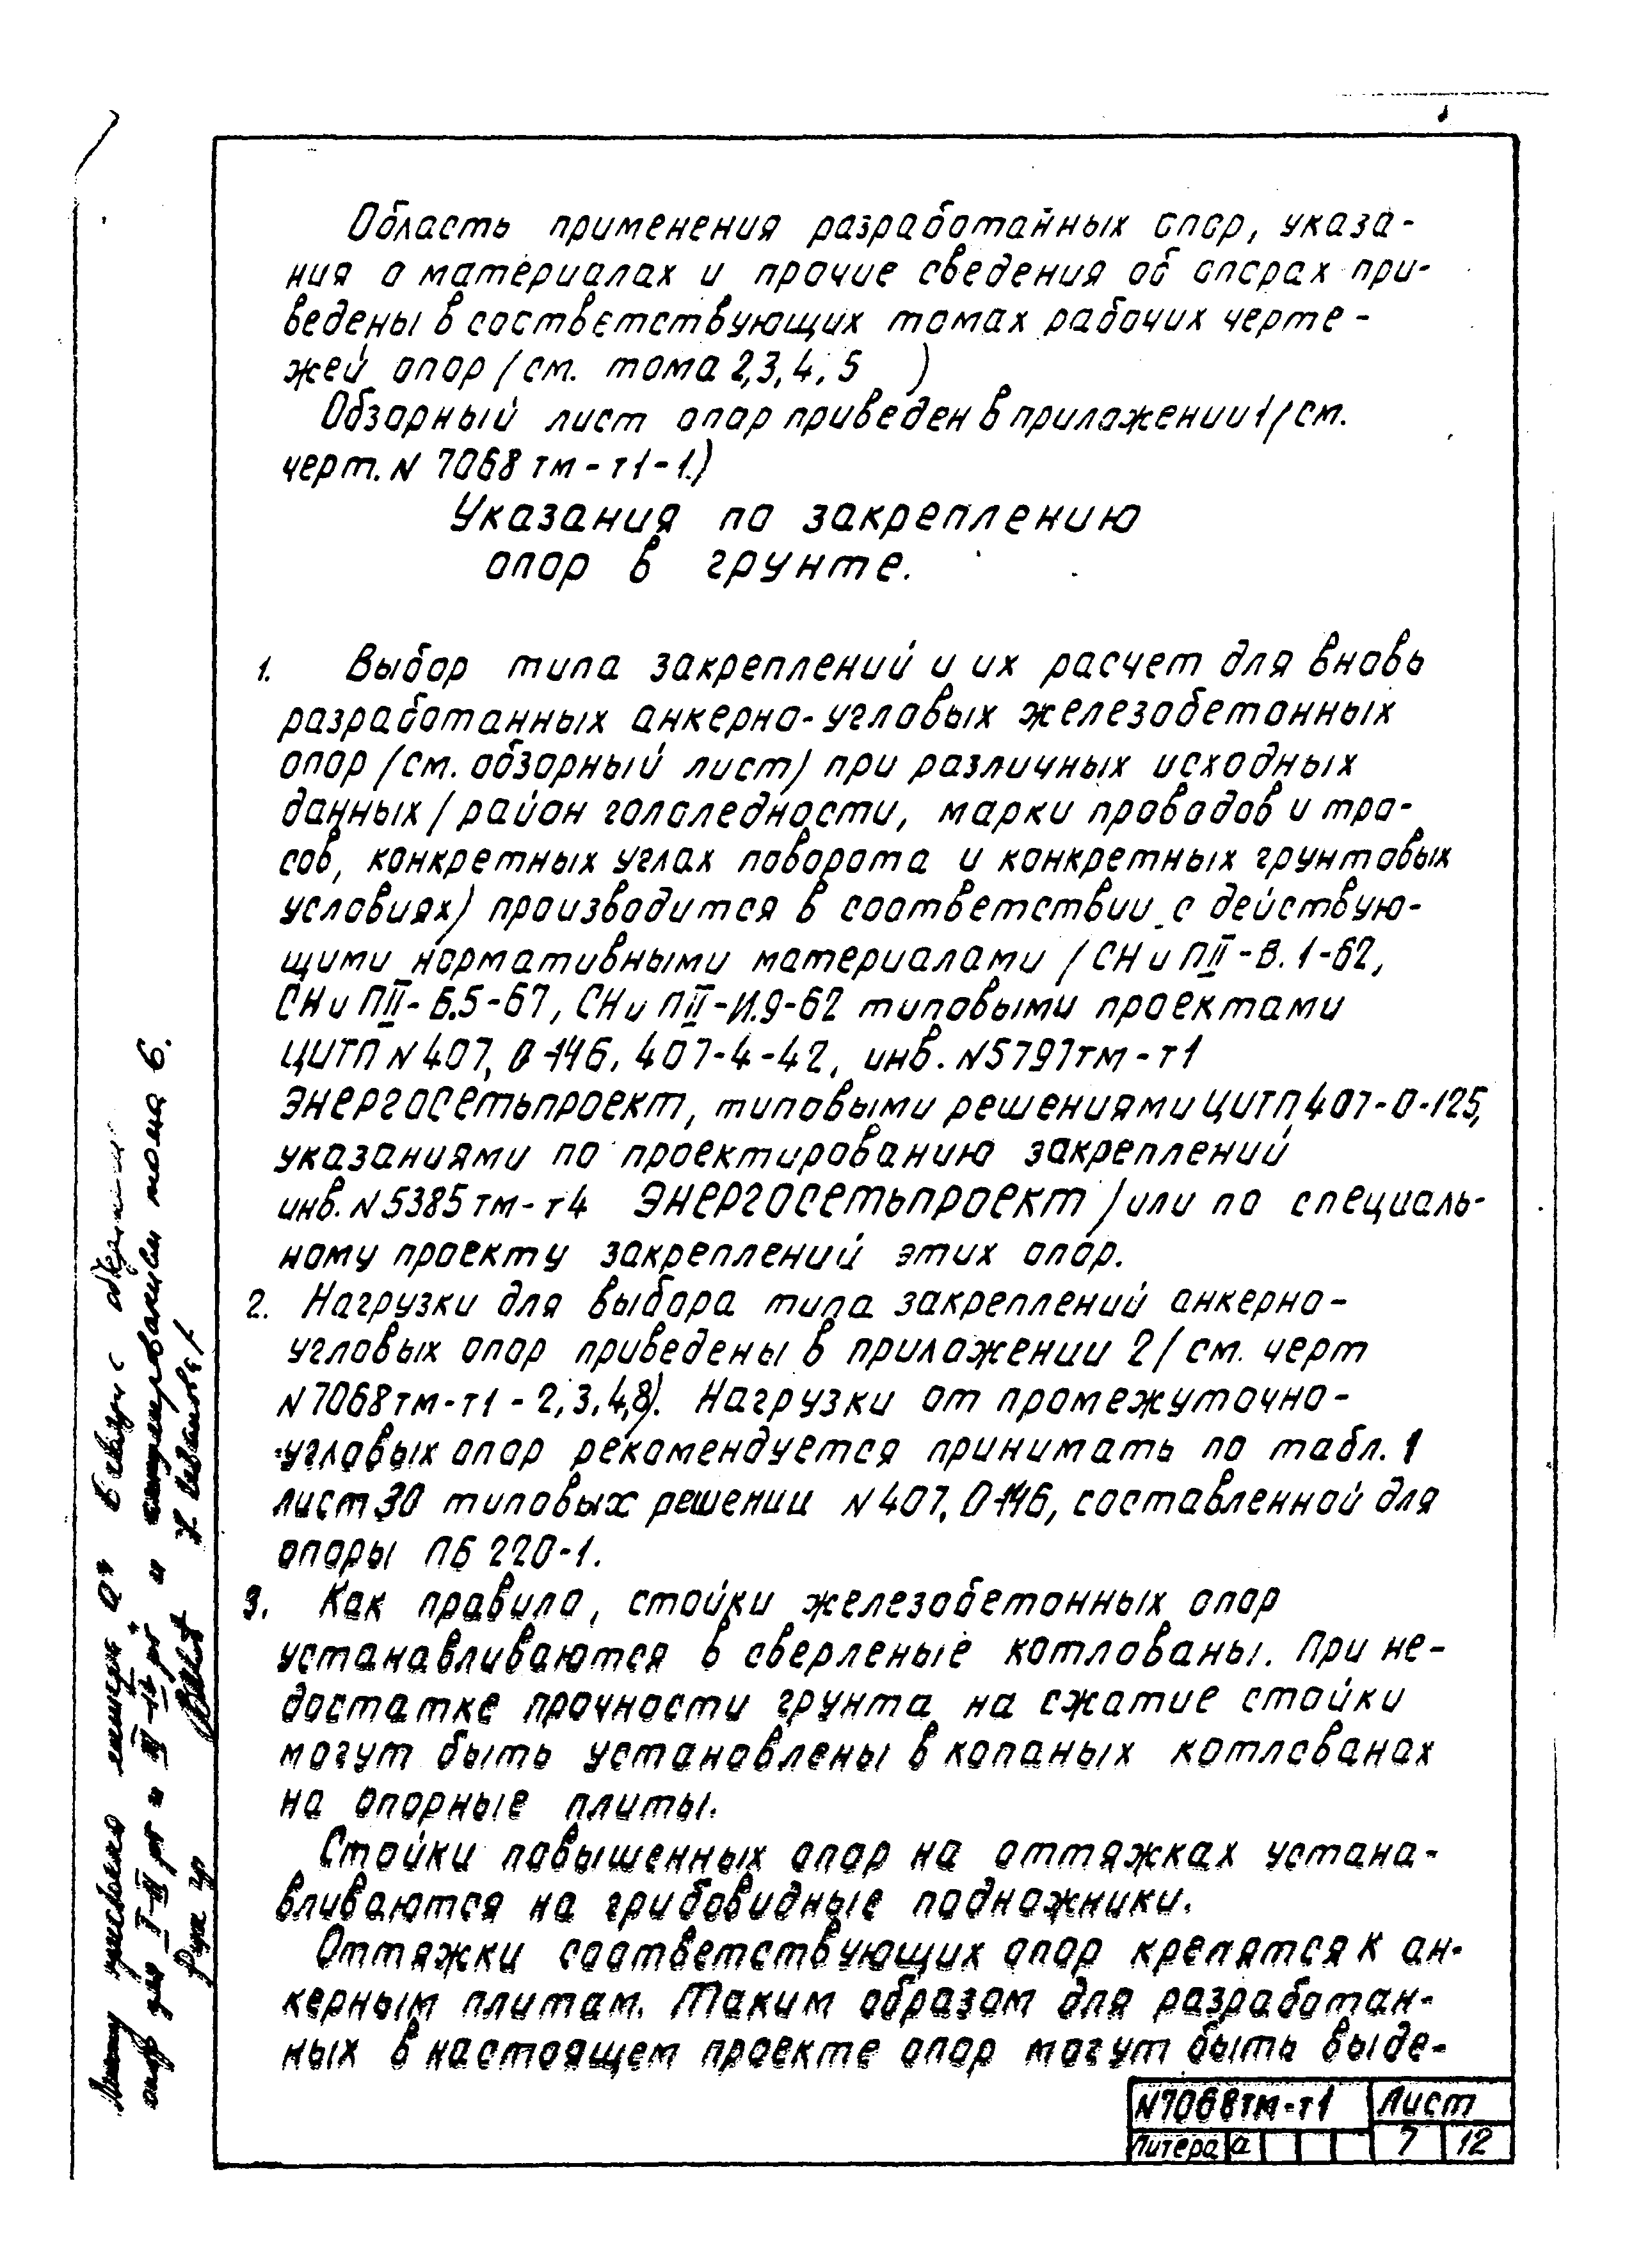 Область применения разработанных опор, указа-
ния о материалах и прочие сведения об опорах при-
ведены в соответствующих томах рабочих черте-
жей опор /см. тома 2,3,4,5 )
Обзорный лист опор приведен в приложении 1 /см.
черт. N 7068 тм-т1-1.)
Указания по закреплению
опор в грунте.
1. Выбор типа закреплений и их расчет для вновь
разработанных анкерно-угловых железобетонных
опор /см. обзорный лист) при различных исходных
данных / район гололедности, марки проводов и тро-
сов, конкретных углах поворота и конкретных грунтовых
условиях) производится в соответствии с действую-
щими нормативными материалами / СН и П II - В. 1-62,
СН и П II - Б.5-67, СН и П II - И.9-62 типовыми проектами
ЦИТП N 407, 0-146, 407-4-42, инв. N5797тм-т1
Энергосетьпроект, типовыми решениями ЦИТП 407-0-125,
указаниями по проектированию закреплений
инв. N 5385 тм-т4 Энергосетьпроект /или по специаль-
ному проекту закреплений этих опор.
2. Нагрузки для выбора типа закреплений анкерно-
угловых опор приведены в приложении 2 / см. черт
N 7068тм-т1 - 2,3,4,8). Нагрузки от промежуточно-
угловых опор рекомендуется принимать по табл. 1
лист 30 типовых решении N 407, 0-146, составленной для
опоры ПБ 220-1.
3. Как правило, стойки железобетонных опор
устанавливаются в сверленые котлованы. При не-
достатке прочности грунта на сжатие стойки
могут быть установлены в копаных котлованах
на опорные плиты.
Стойки повышенных опор на оттяжках устана-
вливаются на грибовидные подножники.
Оттяжки соответствующих опор крепятся к ан-
керным плитам. Таким образом для разработан-
ных в настоящем проекте опор могут быть выде-
N7068тм-т1 Лист
Литера а 7 12
Листу присвоена литера "а" в связи с
опор для I-II рг и III-IV рг и тома 6.
Рук. гр